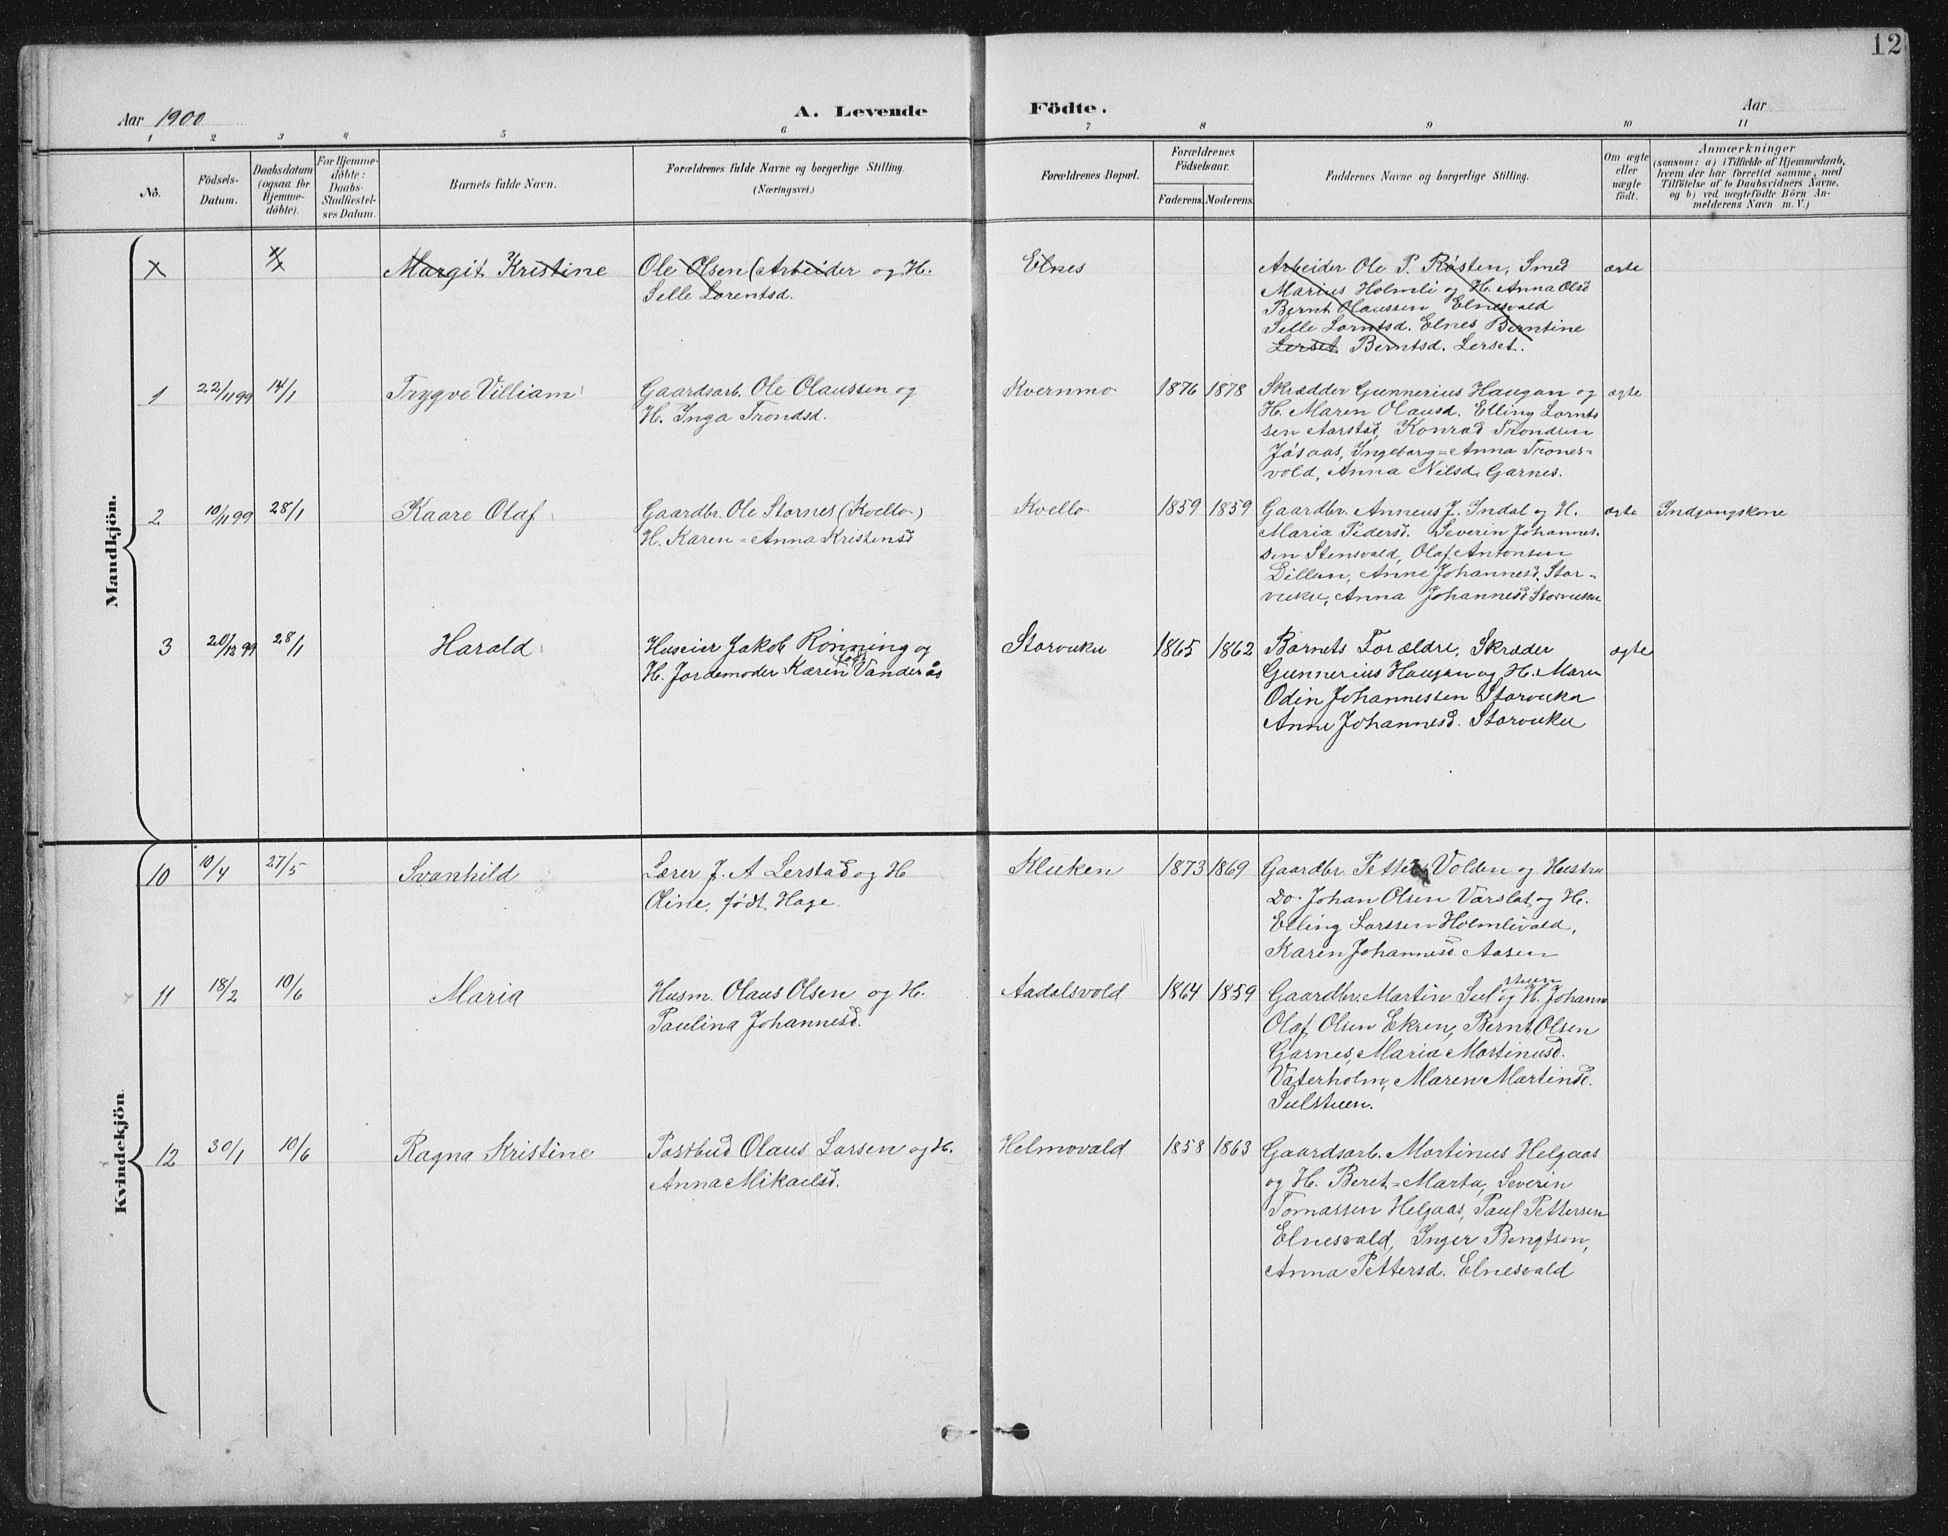 12
Aar 1900
A. Levende Födte.
Aar
1 2 3 4 5 6 7 8 9 10 11
No.
Födsels-
Datum.
Daabsdatum
(ogsaa for
Hjemme-
döbte).
For Hjemme-
döbte:
Daabs-
Stadfæstel-
ses Datum.
Barnets fulde Navn.
Forældrenes fulde Navne og borgerlige Stilling.
(Næringsvei.)
Forældrenes Bopæl.
Forældrenes
Födselsaar.
Faderens. Moderens.
Faddernes Navne og borgerlige Stilling.
Om ægte
eller
uægte
født.
Anmærkninger
(saasom: a) i Tilfælde af Hjemmedaab,
hvem der har forrettet samme, med
Tilföielse af to Daabsvidners Navne,
og b) ved uægtefödte Börn An-
melderens Navn m. V.)
Mandkjön.
Margit Kristine
Ole Olsen (Arbeider og H.
Selle Lorentsd.
Elnes
Arbeider Ole P. Røsten, Smed
Marius Holmli og H. Anna Olsd
Bernt Olaussen Elnesvald
Selle Lorntsd. Elnes Berntine
Lerset Berntsd. Lerset.
ægte
1 22/11 99 14/1
Trygve Villiam
Gaardsarb. Ole Olaussen og
H. Inga Trondsd.
Kvernmo
1876 1878
Skrædder Gunnerius Haugan og
H. Maren Olausd. Elling Lornts
sen Aarstad, Konrad Trondsen
Jøsaas, Ingeborg=Anna Trones-
vold, Anna Nilsd. Garnes.
ægte
2 10/11 99 28/1
Kaare Olaf
Gaardbr. Ole Stornes (Kvello)
H. Karen=Anna Kristensd
Kvello
1859 1859
Gaardbr. Anneus J. Indal og H.
Maria Pedersd. Severin Johannes-
sen Stensvald, Olaf Antonsen
Dillan, Anne Johannesd. Stor-
vuku, Anna Johannesd Storvuku
ægte
Indgangskone
3 20/12 99 28/1
Harald
Huseier Jakob Rønning og
H. Jordemoder Karen født Vanderås
Storvuku
1865 1862
Barnets Forældre, Skræder
Gunnerius Haugan og H. Maren
Odin Johannessen Storvuku
Anne Johannesd. Storvuku
ægte
Kvindekjön.
10 10/4 27/5
Svanhild
Lærer J. A Lerstad og H
Oline, født Hage.
Kluken
1873 1869
Gaardbr Petter Volden og Hustru
Do. Johan Olsen Varslot og H.
Elling Larssen Holmlivald,
Karen Johannesd. Aasen
11 18/2 10/6
Maria
Husm. Olaus Olsen og H.
Paulina Johannesd.
Aadalsvold
1864 1859
Gaardbr. Martin Sulstuen og H. Johanna
Olaf Olsen Ekren, Bernt Olsen
Garnes, Maria Martinusd.
Vaterholm, Maren Martinsd.
Sulstuen.
12 30/1 10/6
Ragna Kristine
Postbud Olaus Larsen og H.
Anna Mikaelsd.
Helmovald
1858 1863
Gaardsarb. Martinus Helgaas
og H. Beret=Marta, Severin
Tomassen Helgaas, Paul Pettersen
Elnesvald, Inger Bengtson,
Anna Pettersd. Elnesvald